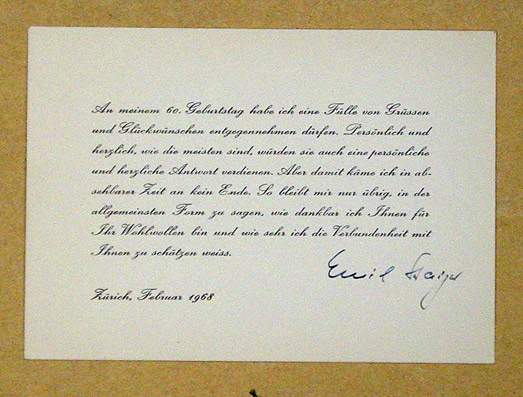 An meinem 60. Geburtstag habe ich eine Fülle von Grüssen
und Glückwünschen entgegennehmen dürfen. Persönlich und
herzlich, wie die meisten sind, würden sie auch eine persönliche
und herzliche Antwort verdienen. Aber damit käme ich in ab-
sehbarer Zeit an kein Ende. So bleibt mir nur übrig, in der
allgemeinsten Form zu sagen, wie dankbar ich Ihnen für
Ihr Wohlwollen bin und wie sehr ich die Verbundenheit mit
Ihnen zu schätzen weiss.
Emil Staiger
Zürich, Februar 1968